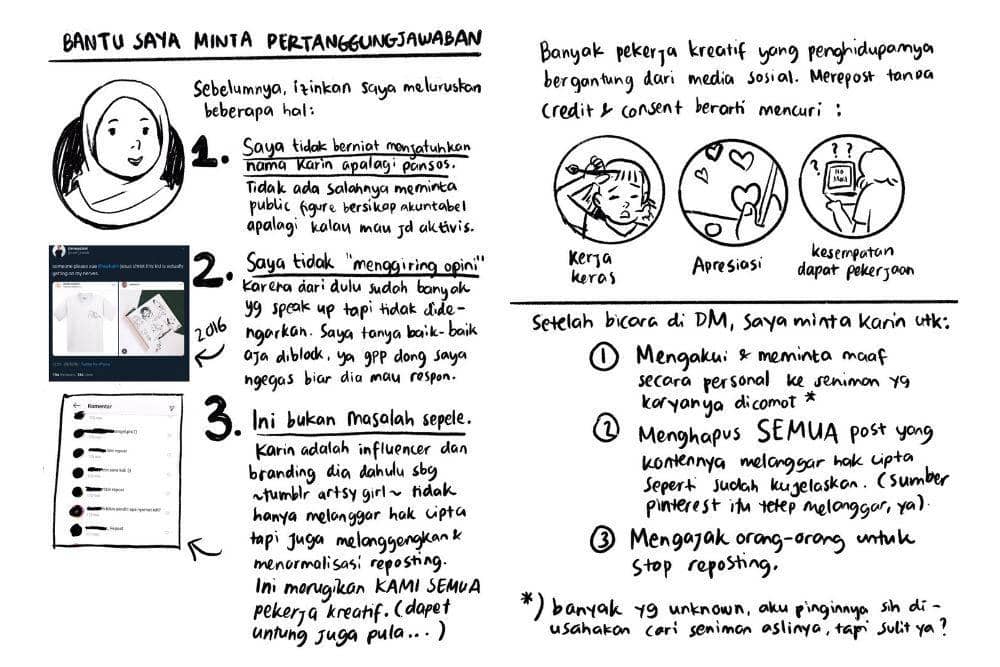 BANTU SAYA MINTA PERTANGGUNGJAWABAN
Sebelumnya, izinkan saya meluruskan
beberapa hal:
1. Saya tidak berniat menjatuhkan
nama Karin apalagi pansos.
Tidak ada salahnya meminta
public figure bersikap akuntabel
apalagi kalau mau jd aktivis.
someone please sue
jesus christ this kid is actually
getting on my nerves.
2016
2. Saya tidak "menggiring opini"
karena dari dulu sudah banyak
yg speak up tapi tidak dide-
ngarkan. Saya tanya baik-baik
aja diblock, ya gpp dong saya
ngegas biar dia mau respon.
Komentar
3. Ini bukan masalah sepele.
Karin adalah influencer dan
branding dia dahulu sbg
~tumblr artsy girl~ tidak
hanya melanggar hak cipta
tapi juga melanggengkan &
menormalisasi reposting.
Ini merugikan KAMI SEMUA
pekerja kreatif. (dapet
untung juga pula...)
Banyak pekerja kreatif yang penghidupannya
bergantung dari media sosial. Merepost tanpa
credit & consent berarti mencuri :
NO MAIL
? ?
?
kerja
keras
Apresiasi
kesempatan
dapat pekerjaan
Setelah bicara di DM, saya minta Karin utk:
1 Mengakui & meminta maaf
secara personal ke seniman yg
karyanya dicomot *
2 Menghapus SEMUA post yang
kontennya melanggar hak cipta
seperti sudah kujelaskan. (sumber
pinterest itu tetep melanggar, ya).
3 Mengajak orang-orang untuk
stop reposting.
*) banyak yg unknown, aku pinginnya sih di-
usahakan cari seniman aslinya, tapi sulit ya?